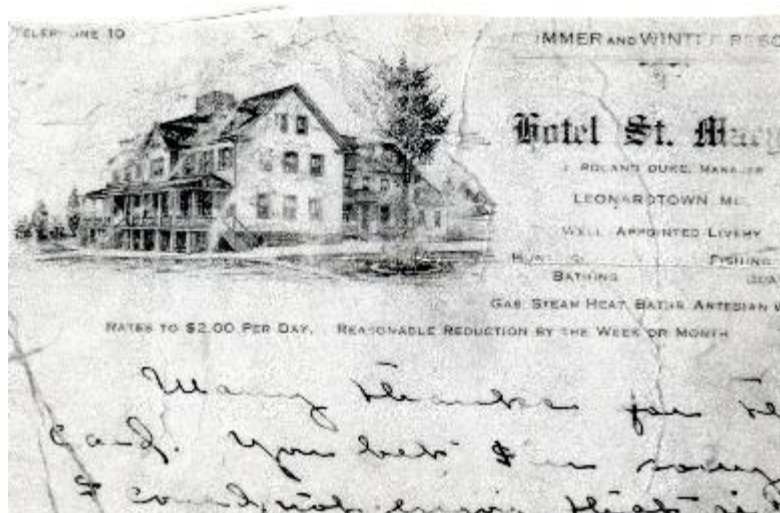 TELEPHONE 10
SUMMER AND WINTER RESO
Hotel St. Mary
J. ROLAND DUKE, MANAGER
LEONARDTOWN MD.
WELL APPOINTED LIVERY
HUNTING FISHING
BATHING BOA
GAS, STEAM HEAT, BATHS, ARTESIAN W
RATES TO $2.00 PER DAY. REASONABLE REDUCTION BY THE WEEK OR MONTH
Many thanks for the
card. You bet I'm sorry
I could not